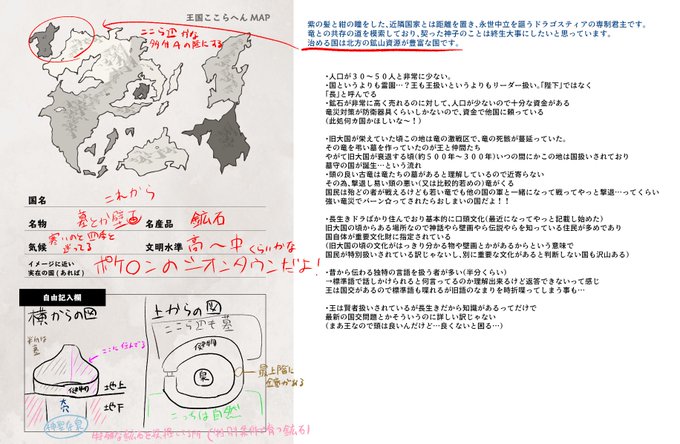 王国ここらへんMAP
ここら辺かな
紫の髪と紺の瞳をした、近隣国家とは距離を置き、永世中立を謳うドラゴスティアの専制君主です。
竜との共存の道を模索しており、契った神子のことは終生大事にしたいと思っています。
治める国は北方の鉱山資源が豊富な国です。
国名
これから
名物
墓とか壁画
名産品
鉱石
気候
文明水準
高〜中くらいかな
イメージに近い
実在の国(あれば)
ポケ〇ンのシオンタウンだよ!
自由記入欄
横からの図
上からの図
ここに住んでる
地上
地下
ここら辺も墓
泉
最上階に
こっちは自然
・人口が30〜50人と非常に少ない。
・国というよりも霊園…?王も王扱いというよりもリーダー扱い。「陛下」ではなく
「長」と呼んでる
・鉱石が非常に高く売れるのに対して、人口が少ないので十分な資金がある
竜災対策が防衛器具くらいしかないので、資金で他国に頼っている
(此処何カ国かほしいな〜!)
・旧大国が栄えていた頃この地は竜の激戦区で、竜の死骸が蔓延っていた。
その竜を弔い墓を作っていたのが王と仲間たち
やがて旧大国が衰退する頃(約500年〜300年)いつの間にかこの地は国扱いされており
墓守の国が誕生…という流れ
・頭の良い古竜は竜たちの墓があると理解しているので近寄らない
その為、撃退し易い頭の悪い(又は比較的若めの)竜がくる
国民は殆どの者が戦えるけども若い竜でも他の国の軍と一緒になって戦ってやっと撃退…ってくらい
強い竜災でバーン☆ってされたらおしまいの国だよ!!
・長生きドラばかり住んでおり基本的に口頭文化(最近になってやっと記載し始めた)
旧大国の頃からある場所なので神話やら壁画やら伝説やらを知っている住民が多めであり
国自体が重要文化財に指定されている
(旧大国の頃の文化がはっきり分かる物や壁画とかがあるからという意味で
国民が特別扱いされている訳じゃないし、別に重要な文化があると判断しない国も沢山ある)
・昔から伝わる独特の言語を扱う者が多い(半分くらい)
→標準語で話しかけられると何言ってるのか理解出来るけど返答できないって感じ
王は国交があるので標準語も喋れるが旧語のなまりを時折喋ってしまう事も…
・王は賢者扱いされているが長生きだから知識があるってだけで
最新の国交問題とかそういうのに詳しい訳じゃない
(まあ王なので頭は良いんだけど…良くないと困る…)